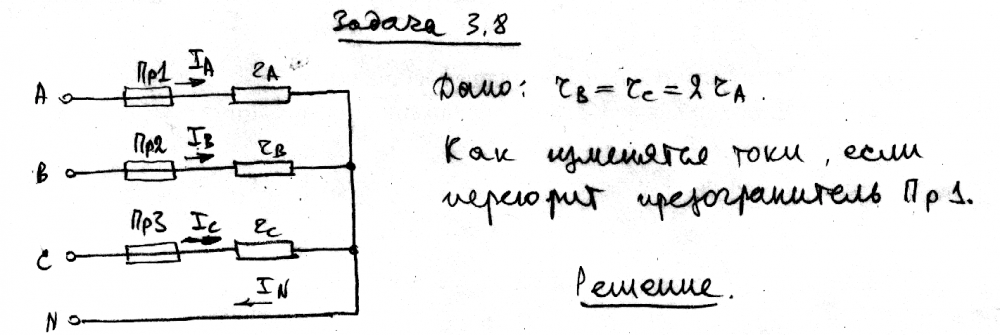 Задача 3,8
Пр1 I_A r_A
A
Дано: r_B = r_C = 2 r_A.
Пр2 I_B r_B
B
Как изменятся токи, если
перегорит предохранитель Пр1.
Пр3 I_C r_C
C
I_N
N
Решение.